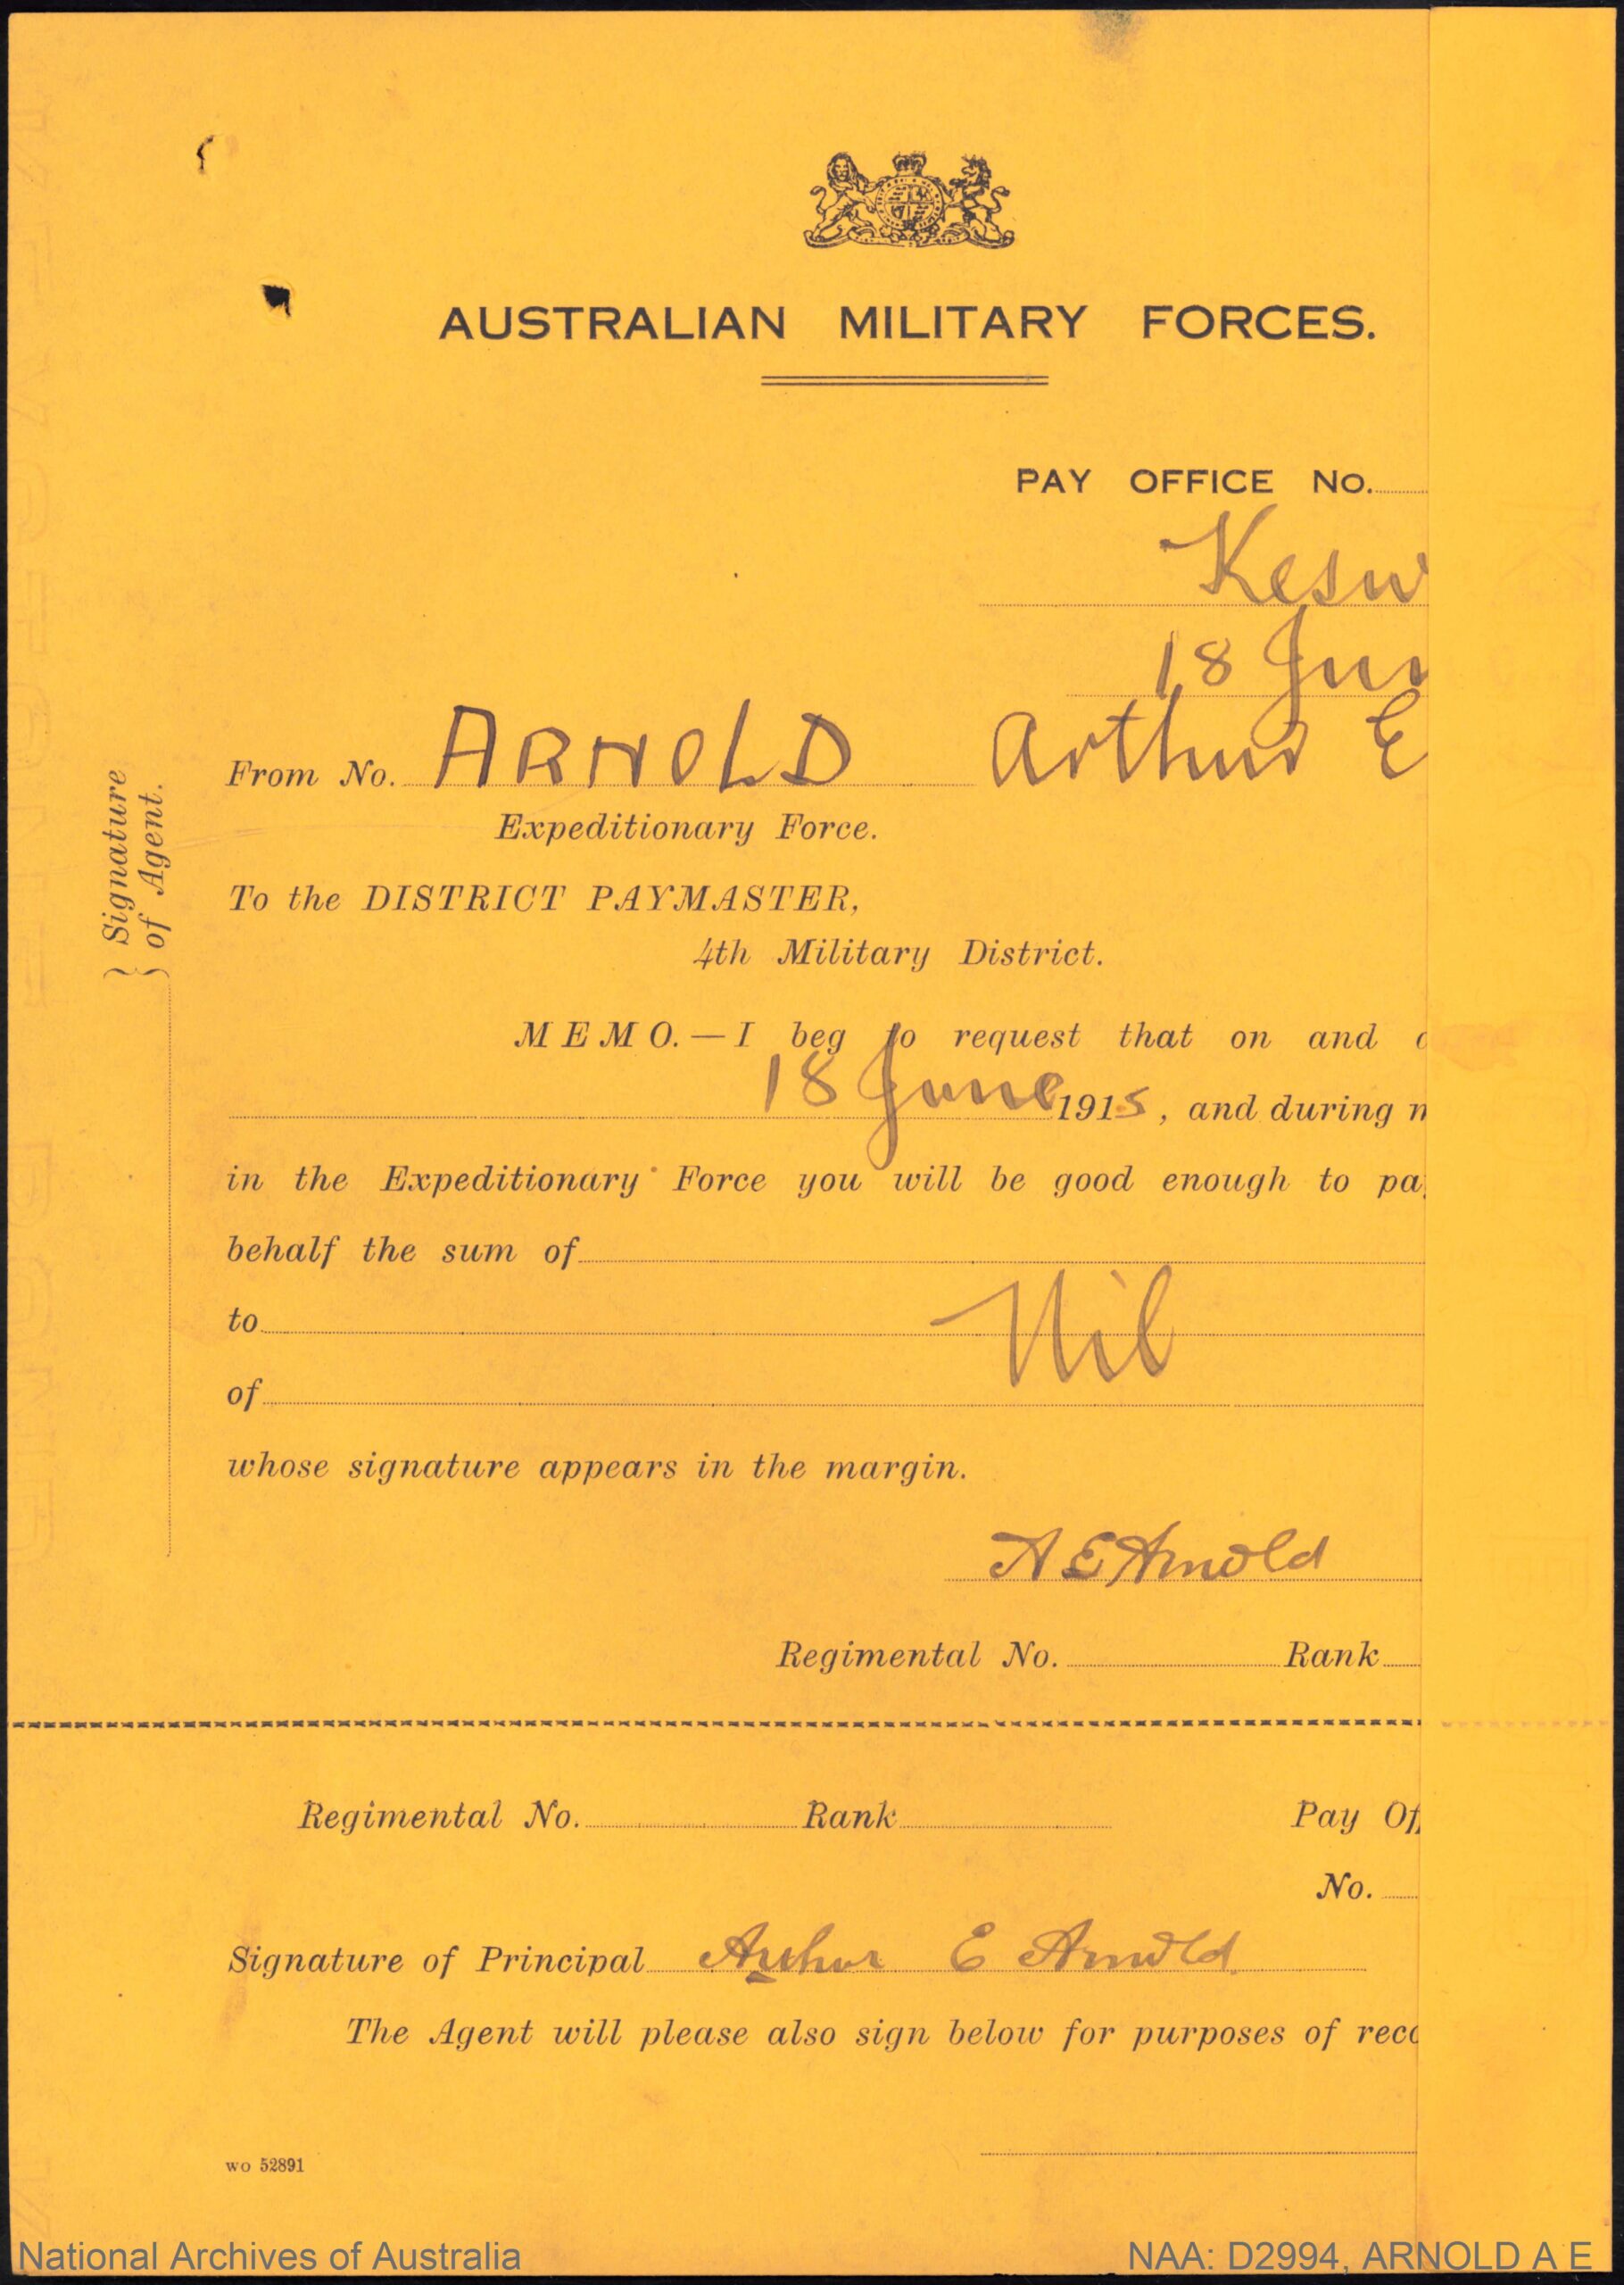 AUSTRALIAN MILITARY FORCES.
PAY OFFICE No.
Kesw
18 Jun
From No. ARNOLD Arthur E
Expeditionary Force.
Signature
of Agent.
To the DISTRICT PAYMASTER,
4th Military District.
MEMO.—I beg to request that on and
18 June 1915, and during
in the Expeditionary Force you will be good enough to pa
behalf the sum of
to Nil
of
whose signature appears in the margin.
A E Arnold
Regimental No. Rank
Regimental No. Rank Pay Of
No.
Signature of Principal Arthur E Arnold
The Agent will please also sign below for purposes of reco
wo 52891
National Archives of Australia NAA: D2994, ARNOLD A E